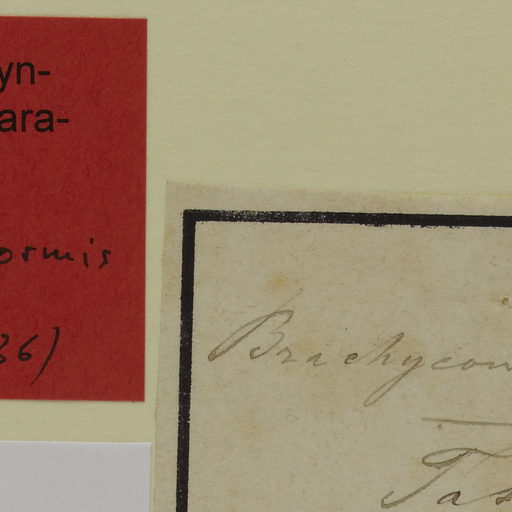 yn-
ara-
ormis
86)
Brachycom
Tas